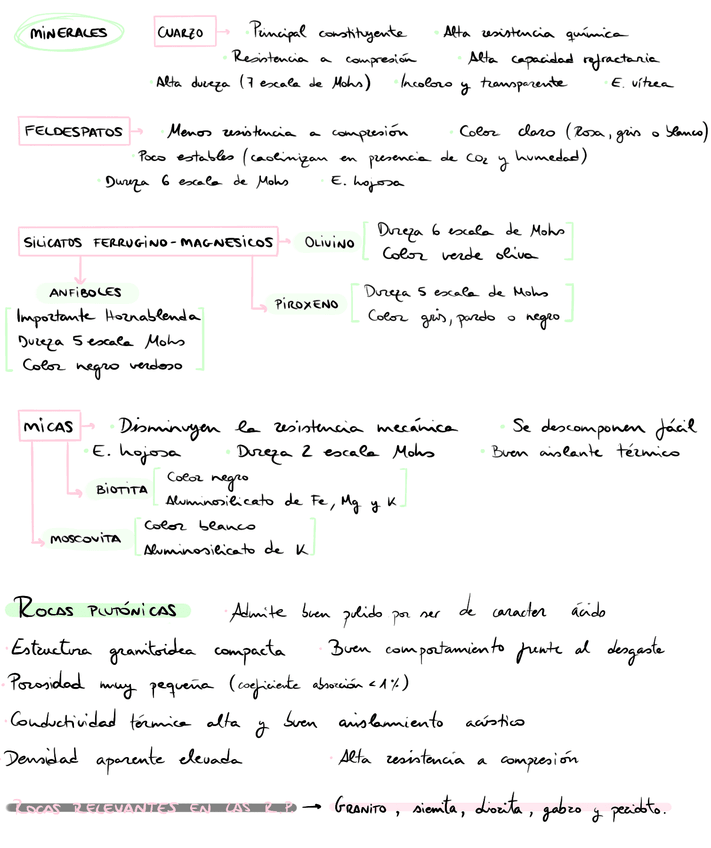 MINERALES CUARZO → · Principal constituyente · Alta resistencia química
· Resistencia a compresión · Alta capacidad refractaria
· Alta dureza (7 escala de Mohs) · Incoloro y transparente · E. vítrea
FELDESPATOS → · Menos resistencia a compresión · Color claro (Rosa, gris o blanco)
· Poco estables (caolinizan en presencia de CO2 y humedad)
· Dureza 6 escala de Mohs · E. hojosa
SILICATOS FERRUGINO-MAGNESICOS → OLIVINO [Dureza 6 escala de Mohs
Color verde oliva]
ANFIBOLES
[Importante Hornablenda
Dureza 5 escala Mohs
Color negro verdoso]
PIROXENO [Dureza 5 escala de Mohs
Color gris, pardo o negro]
MICAS → · Disminuyen la resistencia mecánica · Se descomponen fácil
· E. hojosa · Dureza 2 escala Mohs · Buen aislante térmico
BIOTITA [Color negro
Aluminosilicato de Fe, Mg y K]
MOSCOVITA [Color blanco
Aluminosilicato de K]
ROCAS PLUTÓNICAS · Admite buen pulido por ser de caracter ácido
· Estructura granitoidea compacta · Buen comportamiento frente al desgaste
· Porosidad muy pequeña (coeficiente absorción < 1%)
· Conductividad térmica alta y buen aislamiento acústico
· Densidad aparente elevada · Alta resistencia a compresión
ROCAS RELEVANTES EN LAS R.P → GRANITO, sienita, diorita, gabro y peridoto.